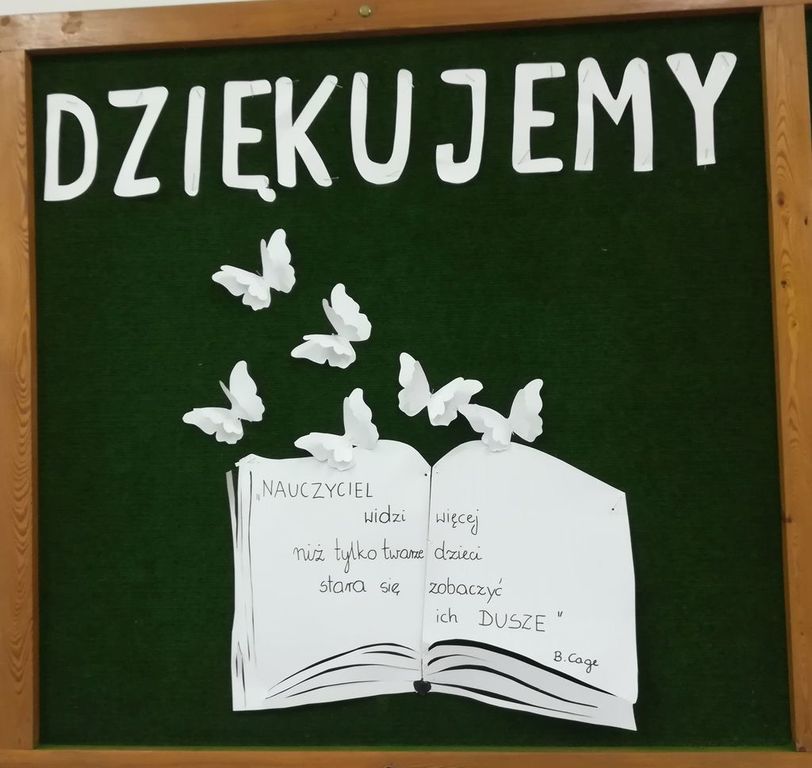 DZIĘKUJEMY
„NAUCZYCIEL
widzi więcej
niż tylko twarze dzieci
stara się zobaczyć
ich DUSZE"
B. Cage